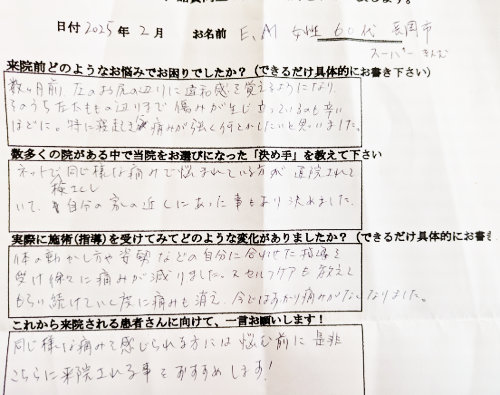 日付 2025 年 2 月 お名前 E,M 女性 60代 長岡市
スーパー
来院前どのようなお悩みでお困りでしたか?(できるだけ具体的にお書き下さい)
数ヶ月前、左のお尻の辺りに違和感を覚えるようになり
そのうち左太ももの辺りまで傷みが生じ立っているのも辛い
ほどに。特に寝起き痛みが強く何とかしたいと思いました。
数多くの院がある中で当院をお選びになった「決め手」を教えて下さい
ネットで同じ様な痛みで悩まれている方が通院されて
いて、自分の家の近くにあった事もあり決めました。
実際に施術(指導)を受けてみてどのような変化がありましたか?(できるだけ具体的にお書き
体の動かし方や姿勢などの自分に合わせた指導を
受け徐々に痛みが減りました。又セルフケアも教えて
もらい続けていく度に痛みも消え、今ではすっかり痛みがなくなりました。
これから来院される患者さんに向けて、一言お願いします!
同じ様な痛みで感じられる方には悩む前に是非
こちらに来院される事をおすすめします!